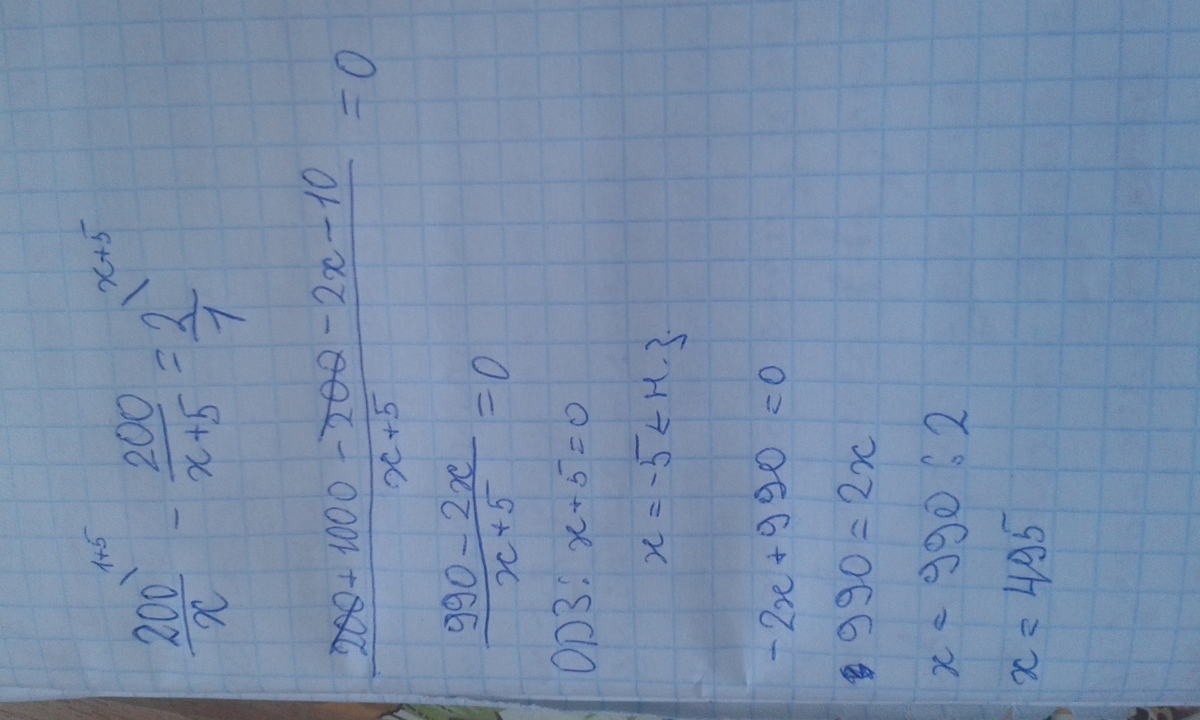 200/x \1+5 - 200/x+5 = 2/1 \x+5
200+1000-200-2x-10/x+5 = 0
990-2x/x+5 = 0
ОДЗ: x+5=0
x=-5 ← н.з.
-2x+990=0
990=2x
x=990:2
x=495